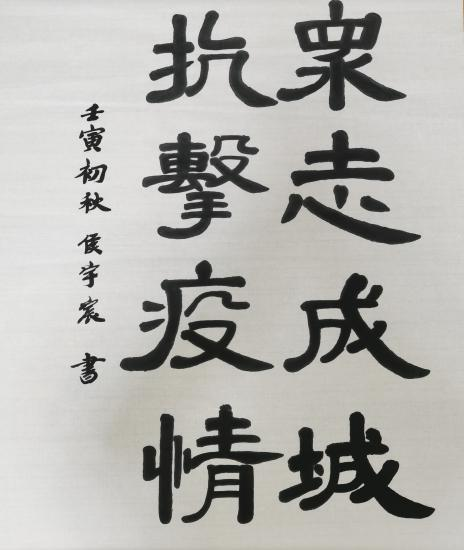 眾志成城
抗擊疫情
壬寅初秋 侯宇宸 書